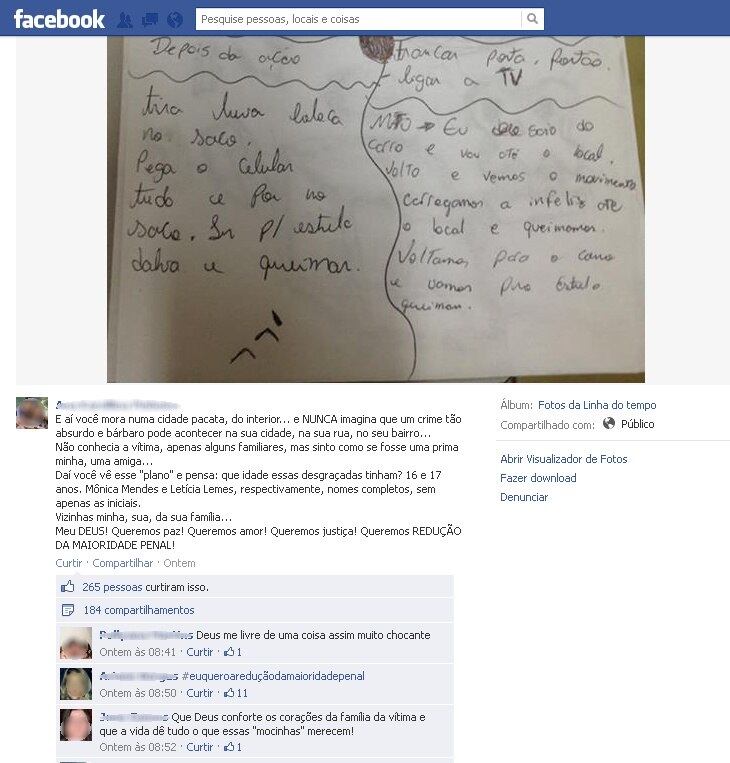 facebook
Pesquise pessoas, locais e coisas
Depois da ação
tira luva boloca
no saco.
Pega o celular
tudo e Poe no
saco. Ir p/ estrela
dalva e queimar.
trancar porta, portão.
ligar a TV
Eu saio do
carro e vou até o local,
volto e vemos o movimento
carregamos a infeliz até
o local e queimamos.
Voltamos para o carro
e vamos pro Estrela
queimar.
E aí você mora numa cidade pacata, do interior... e NUNCA imagina que um crime tão
absurdo e bárbaro pode acontecer na sua cidade, na sua rua, no seu bairro...
Não conhecia a vítima, apenas alguns familiares, mas sinto como se fosse uma prima
minha, uma amiga...
Daí você vê esse "plano" e pensa: que idade essas desgraçadas tinham? 16 e 17
anos. Mônica Mendes e Letícia Lemes, respectivamente, nomes completos, sem
apenas as iniciais.
Vizinhas minha, sua, da sua família...
Meu DEUS! Queremos paz! Queremos amor! Queremos justiça! Queremos REDUÇÃO
DA MAIORIDADE PENAL!
Curtir · Compartilhar · Ontem
265 pessoas curtiram isso.
184 compartilhamentos
Deus me livre de uma coisa assim muito chocante
Ontem às 08:41 · Curtir · 1
#euqueroareduçãodamaioridadepenal
Ontem às 08:50 · Curtir · 11
Que Deus conforte os corações da família da vítima e
que a vida dê tudo o que essas "mocinhas" merecem!
Ontem às 08:52 · Curtir · 1
Álbum: Fotos da Linha do tempo
Compartilhado com: Público
Abrir Visualizador de Fotos
Fazer download
Denunciar